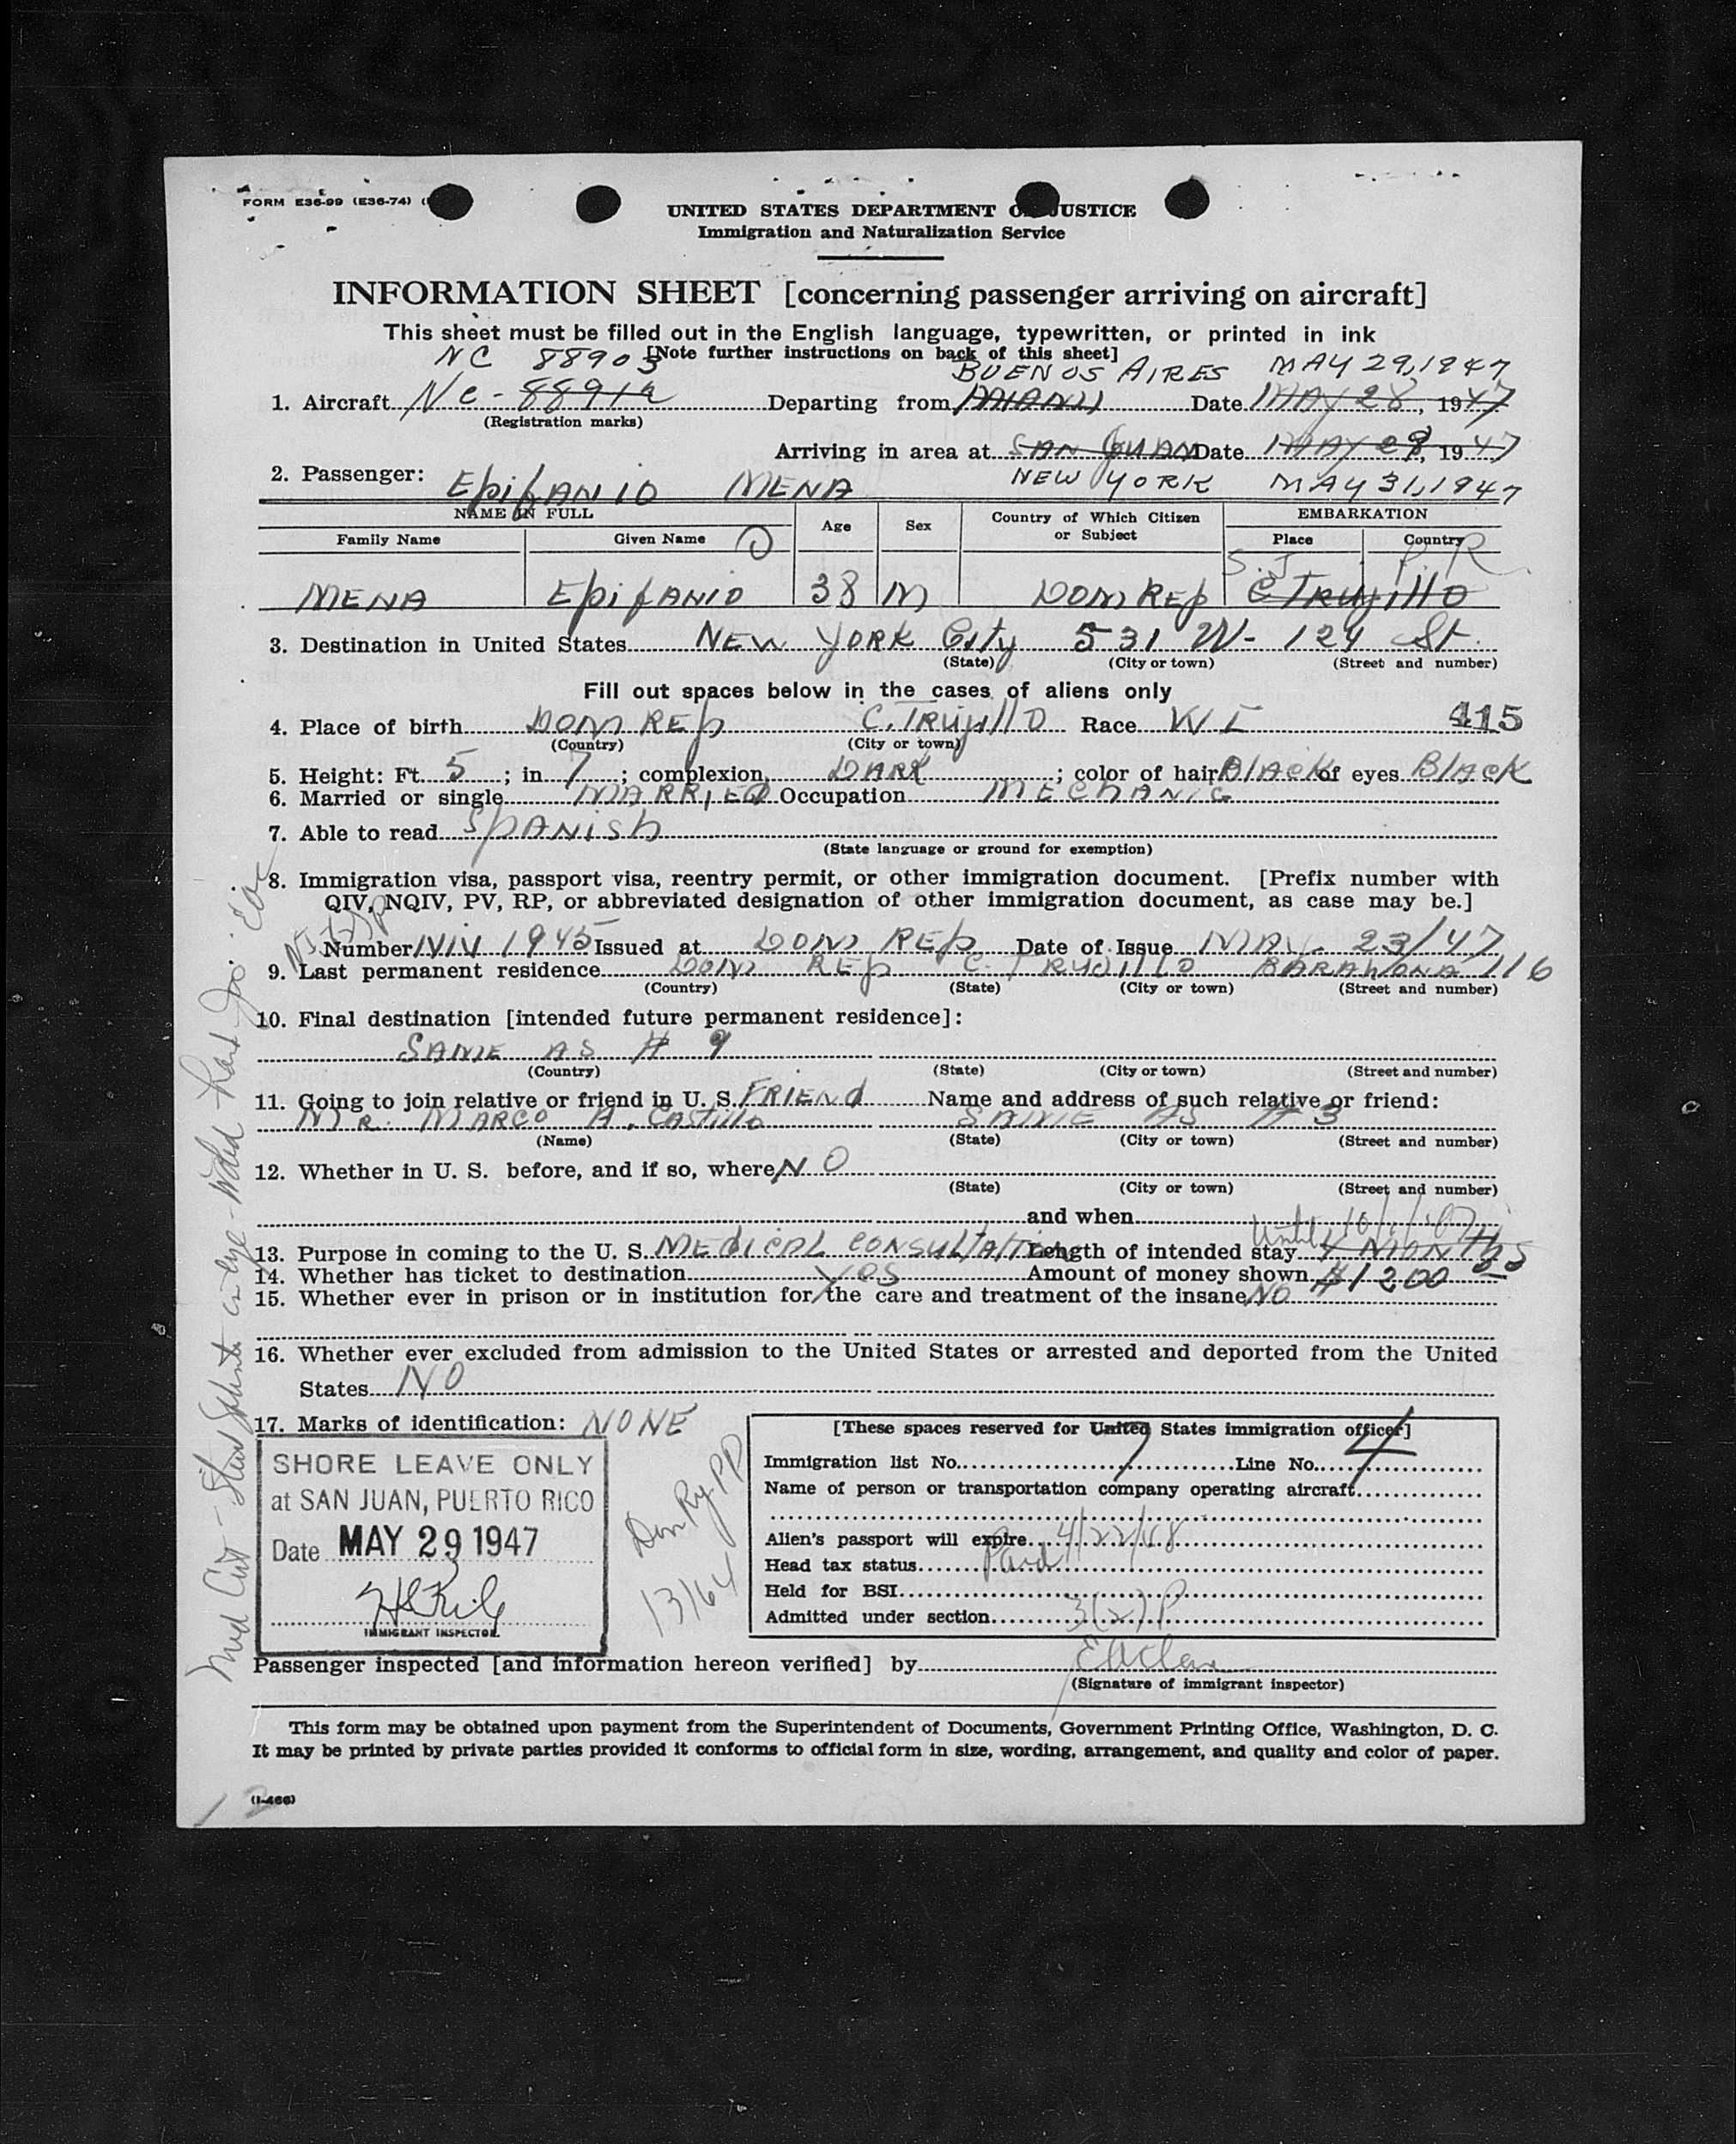 FORM E36-99 (E36-74)
UNITED STATES DEPARTMENT OF JUSTICE
Immigration and Naturalization Service
INFORMATION SHEET [concerning passenger arriving on aircraft]
This sheet must be filled out in the English language, typewritten, or printed in ink
[Note further instructions on back of this sheet]
NC 88903 BUENOS AIRES MAY 29, 1947
1. Aircraft NC - 8891 Departing from MIAMI Date MAY 28, 1947
(Registration marks)
Arriving in area at SAN JUAN Date MAY 28, 1947
2. Passenger: EpifANIO MENA NEW YORK MAY 31, 1947
NAME IN FULL Age Sex Country of Which Citizen or Subject EMBARKATION
Family Name Given Name Place Country
S.J. P.R
MENA EpifANIO 38 M DOM REp C TRUjillO
3. Destination in United States NEW YORK City 531 W- 124 St.
(State) (City or town) (Street and number)
Fill out spaces below in the cases of aliens only
4. Place of birth DOM REp C. TRUjillO Race W I 415
(Country) (City or town)
5. Height: Ft. 5; in 7; complexion DARK; color of hair BlAcK of eyes BlAcK
6. Married or single MARRIED Occupation MEChANIC
7. Able to read SPANISh
(State language or ground for exemption)
8. Immigration visa, passport visa, reentry permit, or other immigration document. [Prefix number with
QIV, NQIV, PV, RP, or abbreviated designation of other immigration document, as case may be.]
Number NIV 1945 Issued at DOM REp Date of Issue MAY- 23/47
9. Last permanent residence DOM REp C. TRUJillO BARAhONA 116
(Country) (State) (City or town) (Street and number)
10. Final destination [intended future permanent residence]:
SAME AS # 9
(Country) (State) (City or town) (Street and number)
11. Going to join relative or friend in U. S. FRIENd Name and address of such relative or friend:
MR. MARCO A. CAStillo SAME AS # 3
(Name) (State) (City or town) (Street and number)
12. Whether in U. S. before, and if so, where NO
(State) (City or town) (Street and number)
and when
Until 10/1/47
13. Purpose in coming to the U. S. MEdicAL CONSULTATION Length of intended stay 4 MONThS
14. Whether has ticket to destination YES Amount of money shown $1200
15. Whether ever in prison or in institution for the care and treatment of the insane NO
16. Whether ever excluded from admission to the United States or arrested and deported from the United
States NO
17. Marks of identification: NONE
SHORE LEAVE ONLY
at SAN JUAN, PUERTO RICO
Date MAY 29 1947
IMMIGRANT INSPECTOR
13164
[These spaces reserved for United States immigration officer]
Immigration list No. 7 Line No. 4
Name of person or transportation company operating aircraft
Alien's passport will expire 4/22/48
Head tax status Paid
Held for BSI
Admitted under section 3(2) P
Passenger inspected [and information hereon verified] by
(Signature of immigrant inspector)
This form may be obtained upon payment from the Superintendent of Documents, Government Printing Office, Washington, D. C.
It may be printed by private parties provided it conforms to official form in size, wording, arrangement, and quality and color of paper.
(I-466)